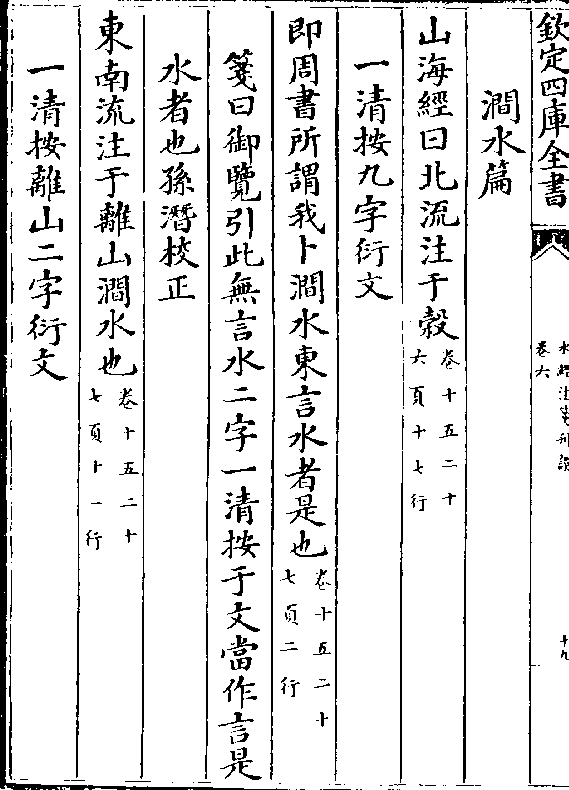 欽定四庫全書
水經注箋刋誤
卷六
十九
澗水篇
山海經曰北流注于穀
卷十五二十
六頁十七行
一清按九字衍文
即周書所謂我卜澗水東言水者是也
卷十五二十
七頁二行
箋曰御覽引此無言水二字一清按于文當作言是
水者也孫潛校正
東南流注于離山澗水也
卷十五二十
七頁十一行
一清按離山二字衍文